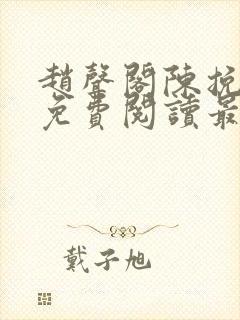 趙聲閣陳挽
免費閱讀最
戴子旭